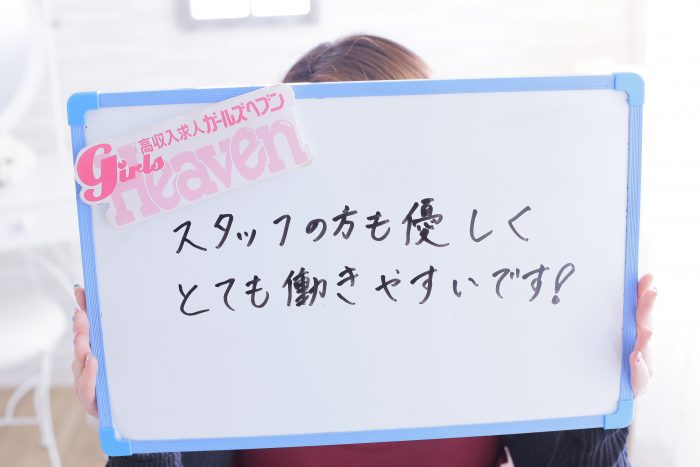 高収入求人ガールズヘブン
Girls
Heaven
スタッフの方も優しく
とても働きやすいです!